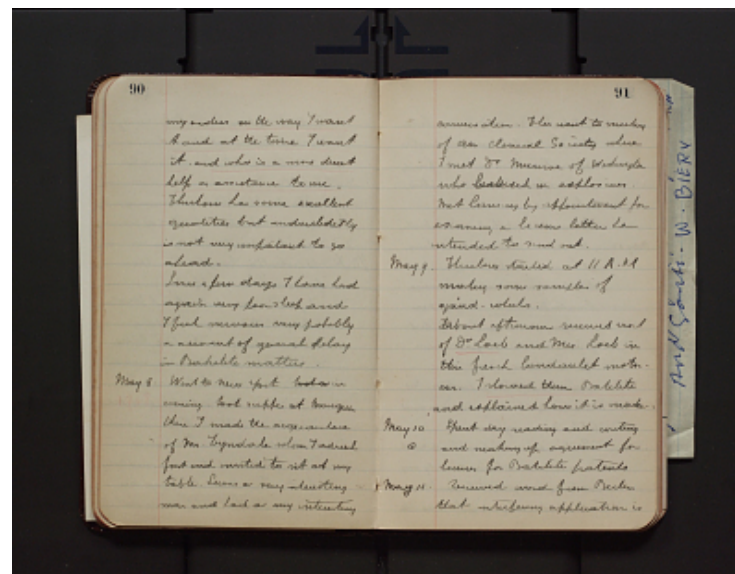 90
my orders in the way I want
it and at the time I want
it. and who is a more direct
help or assistance to me.
Thurlow has some excellent
quantities but undoubtedly
is not very important to go
ahead.
Since a few days I have had
again very poor sleep and
I feel nervous very probably
on account of general delay
in Bakelite matters.
May 8 Went to New York in
evening. took supper at
there I made the acquaintance
of Mr. Lyndale whom I
first and invited to sit at my
table. Seems a very interesting
man and had a very interesting
91
conversation. Then went to meeting
of Am Chemical Society where
I met Dr Munroe of Washington
who lectured on explosives.
Met by appointment for
a license letter he
intended to send out.
May 9. Thurlow started at 11 A.M
making some samples of
grind-wheels.
About afternoon received visit
of Dr Loeb and Mrs. Loeb in
their fresh Landaulet motor-
car. I showed them Bakelite
and explained how it is made.
May 10 Spent day reading and writing
and making up agreement for
license for Bakelite patents
May 11. Received word from
that interfering application is
And Sórki - W. BIERY